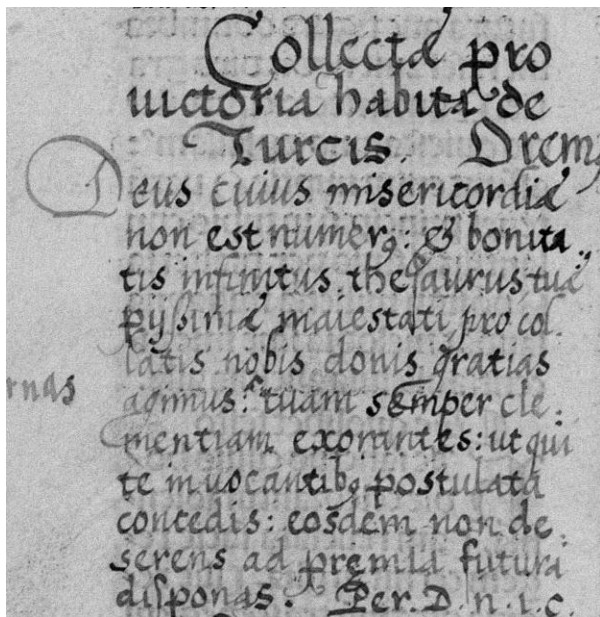 Collectæ pro
uictoria habita de
Turcis. Orem⁹
Deus cuius misericordiæ
non est numer⁹: & bonita
tis infinitus thesaurus tuæ
pijssimæ maiestati pro col.
latis nobis donis gratias
agimus: tuam semper cle.
mentiam exorantes: ut qui
te inuocantib⁹ postulata
concedis: eosdem non de.
serens ad premia futura
disponas. Per. D. n. i. c.
rnas